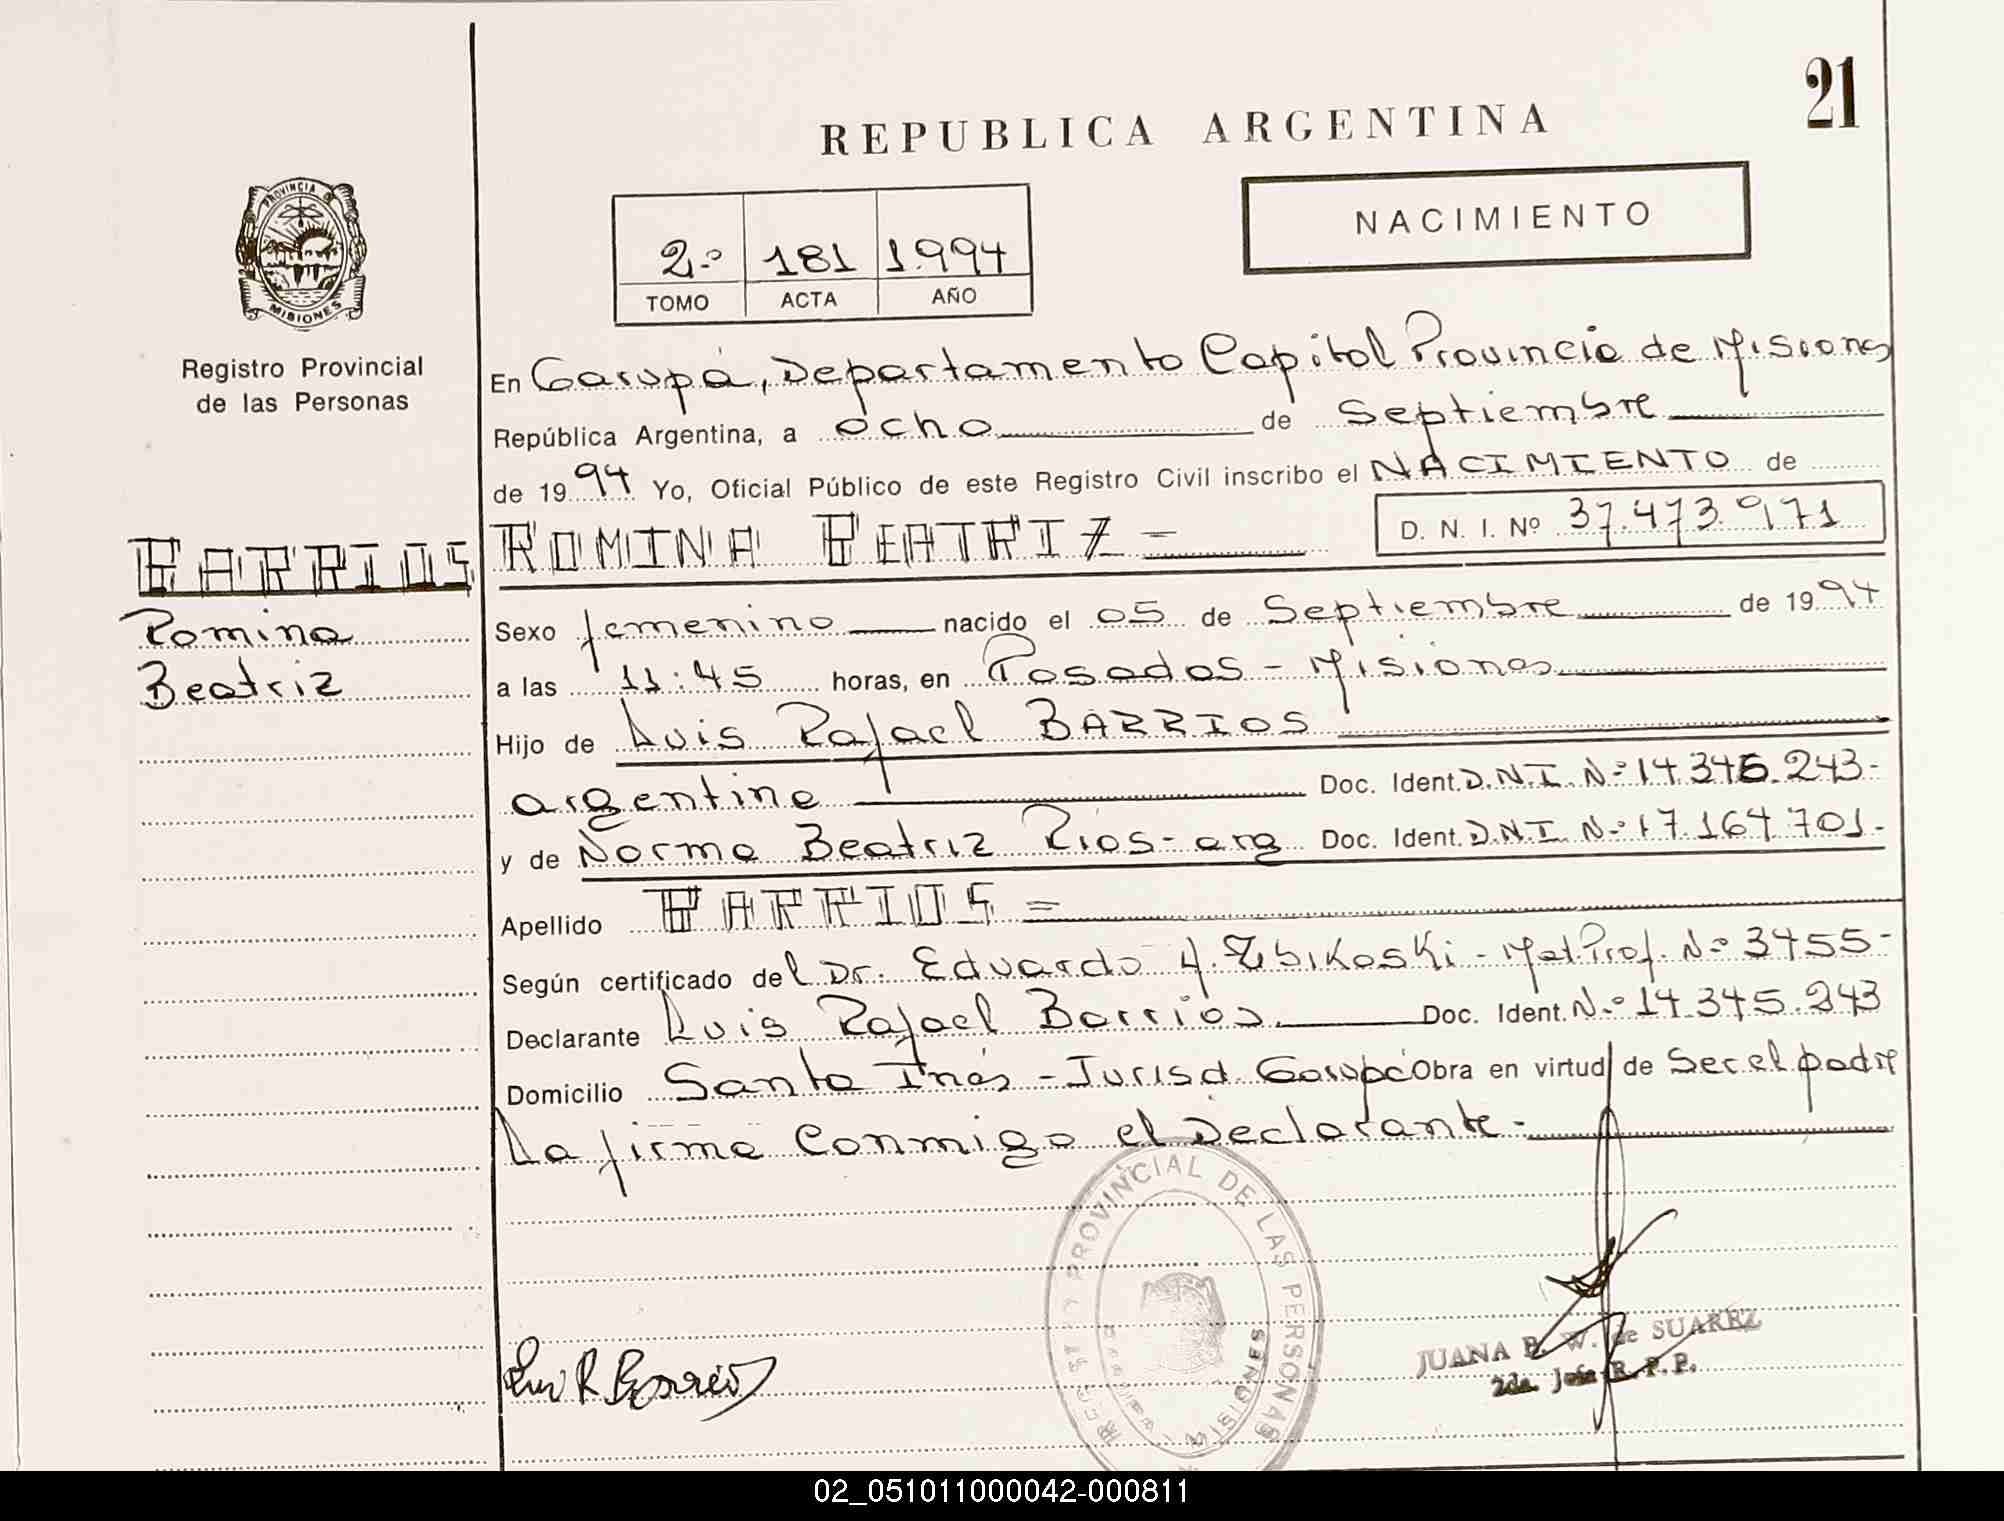 21
REPUBLICA ARGENTINA
PROVINCIA DE
MISIONES
Registro Provincial
de las Personas
NACIMIENTO
2º 181 1.994
TOMO ACTA AÑO
En Garupá, Departamento Capital Provincia de Misiones
República Argentina, a ocho de Septiembre
de 1994 Yo, Oficial Público de este Registro Civil inscribo el NACIMIENTO de
BARRIOS ROMINA BEATRIZ = D. N. I. Nº 37.473.971
Romina
Beatriz
Sexo femenino nacido el 05 de Septiembre de 1994
a las 11:45 horas, en Posadas - Misiones
Hijo de Luis Rafael BARRIOS
argentino Doc. Ident. D.N.I. Nº 14.345.243-
y de Norma Beatriz Rios - arg Doc. Ident. D.N.I. Nº 17.164.701-
Apellido BARRIOS =
Según certificado del Dr. Eduardo A. Zbikoski - Mat. Prof. Nº 3455-
Declarante Luis Rafael Barrios Doc. Ident. Nº 14.345.243
Domicilio Santa Inés - Jurisd. Garupá Obra en virtud de Ser el padre
La firma Conmigo el Declarante.-
REGISTRO PROVINCIAL DE LAS PERSONAS
MISIONES
Luis R Barrios
JUANA B. W. de SUAREZ
2da. Jefe R. P. P.
02_051011000042-000811